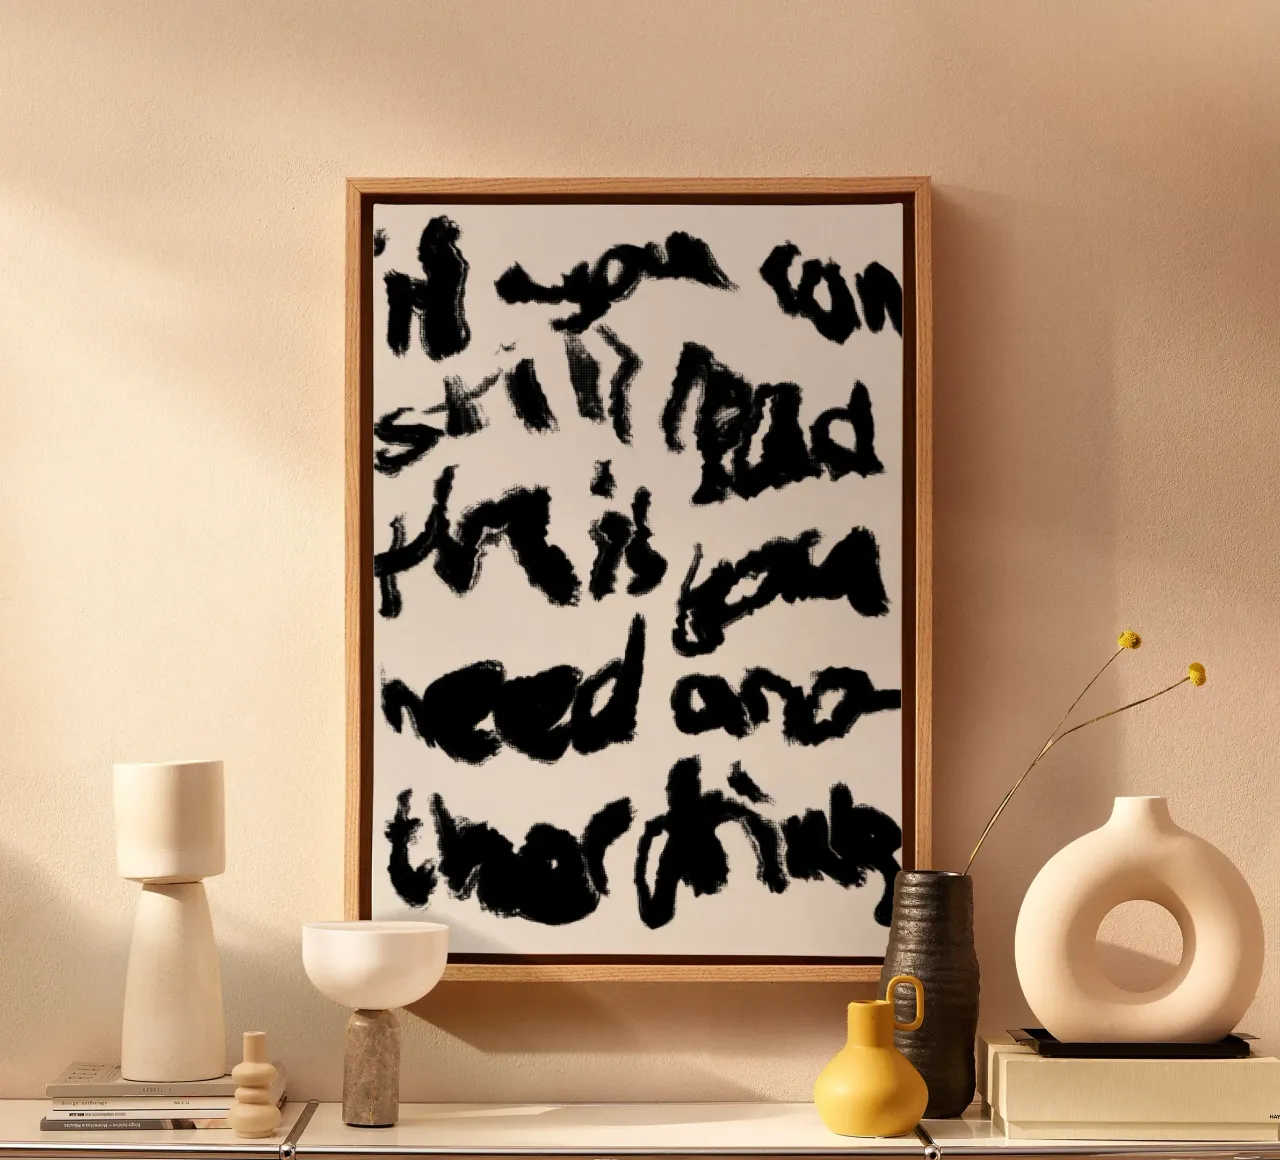 if you can
still read
this you
need ano-
ther drink
design anthology
HAY